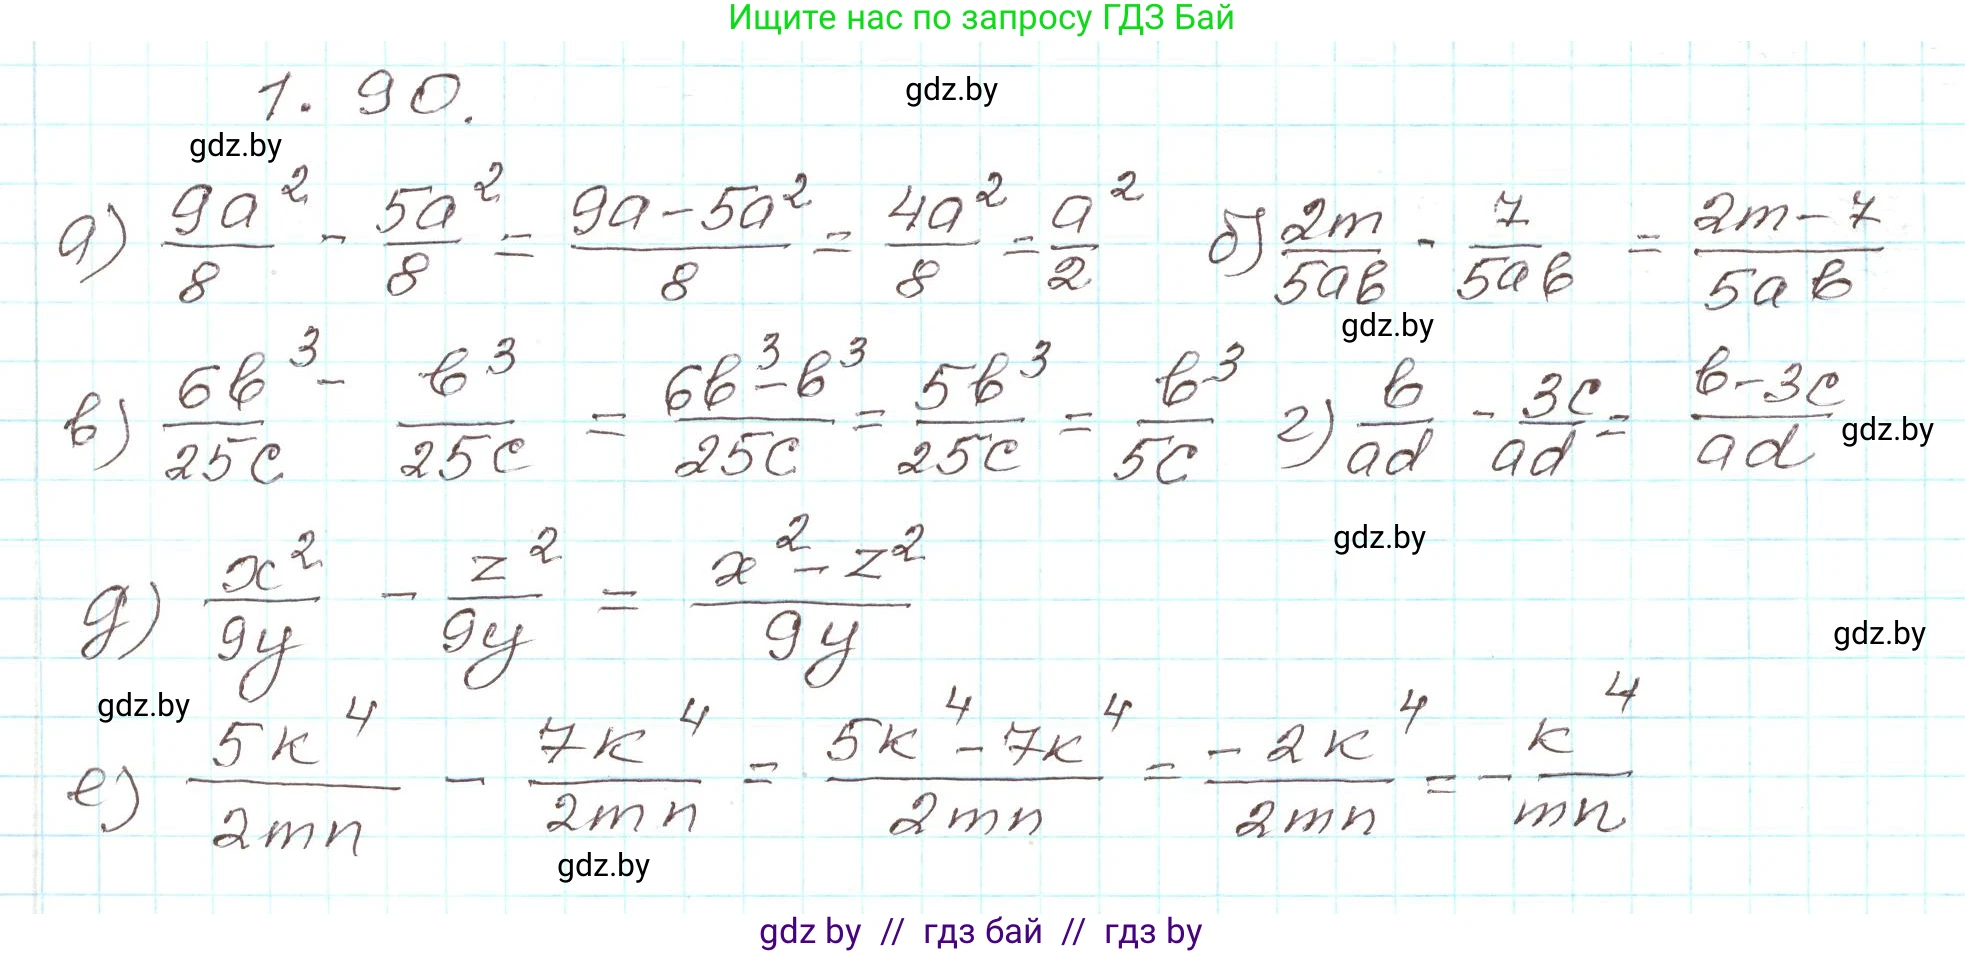 Ищите нас по запросу ГДЗ Бай
1. 90.
gdz.by
gdz.by
а) 9a²/8 - 5a²/8 = 9a - 5a²/8 = 4a²/8 = a²/2 б) 2m/5ab - 7/5ab = 2m - 7/5ab
gdz.by
в) 6b³/25c - b³/25c = 6b³ - b³/25c = 5b³/25c = b³/5c г) b/ad - 3c/ad = b - 3c/ad
gdz.by
gdz.by
д) x²/9y - z²/9y = x² - z²/9y
gdz.by
gdz.by
е) 5k⁴/2mn - 7k⁴/2mn = 5k⁴ - 7k⁴/2mn = -2k⁴/2mn = - k⁴/mn
gdz.by
gdz by // гдз бай // гдз by